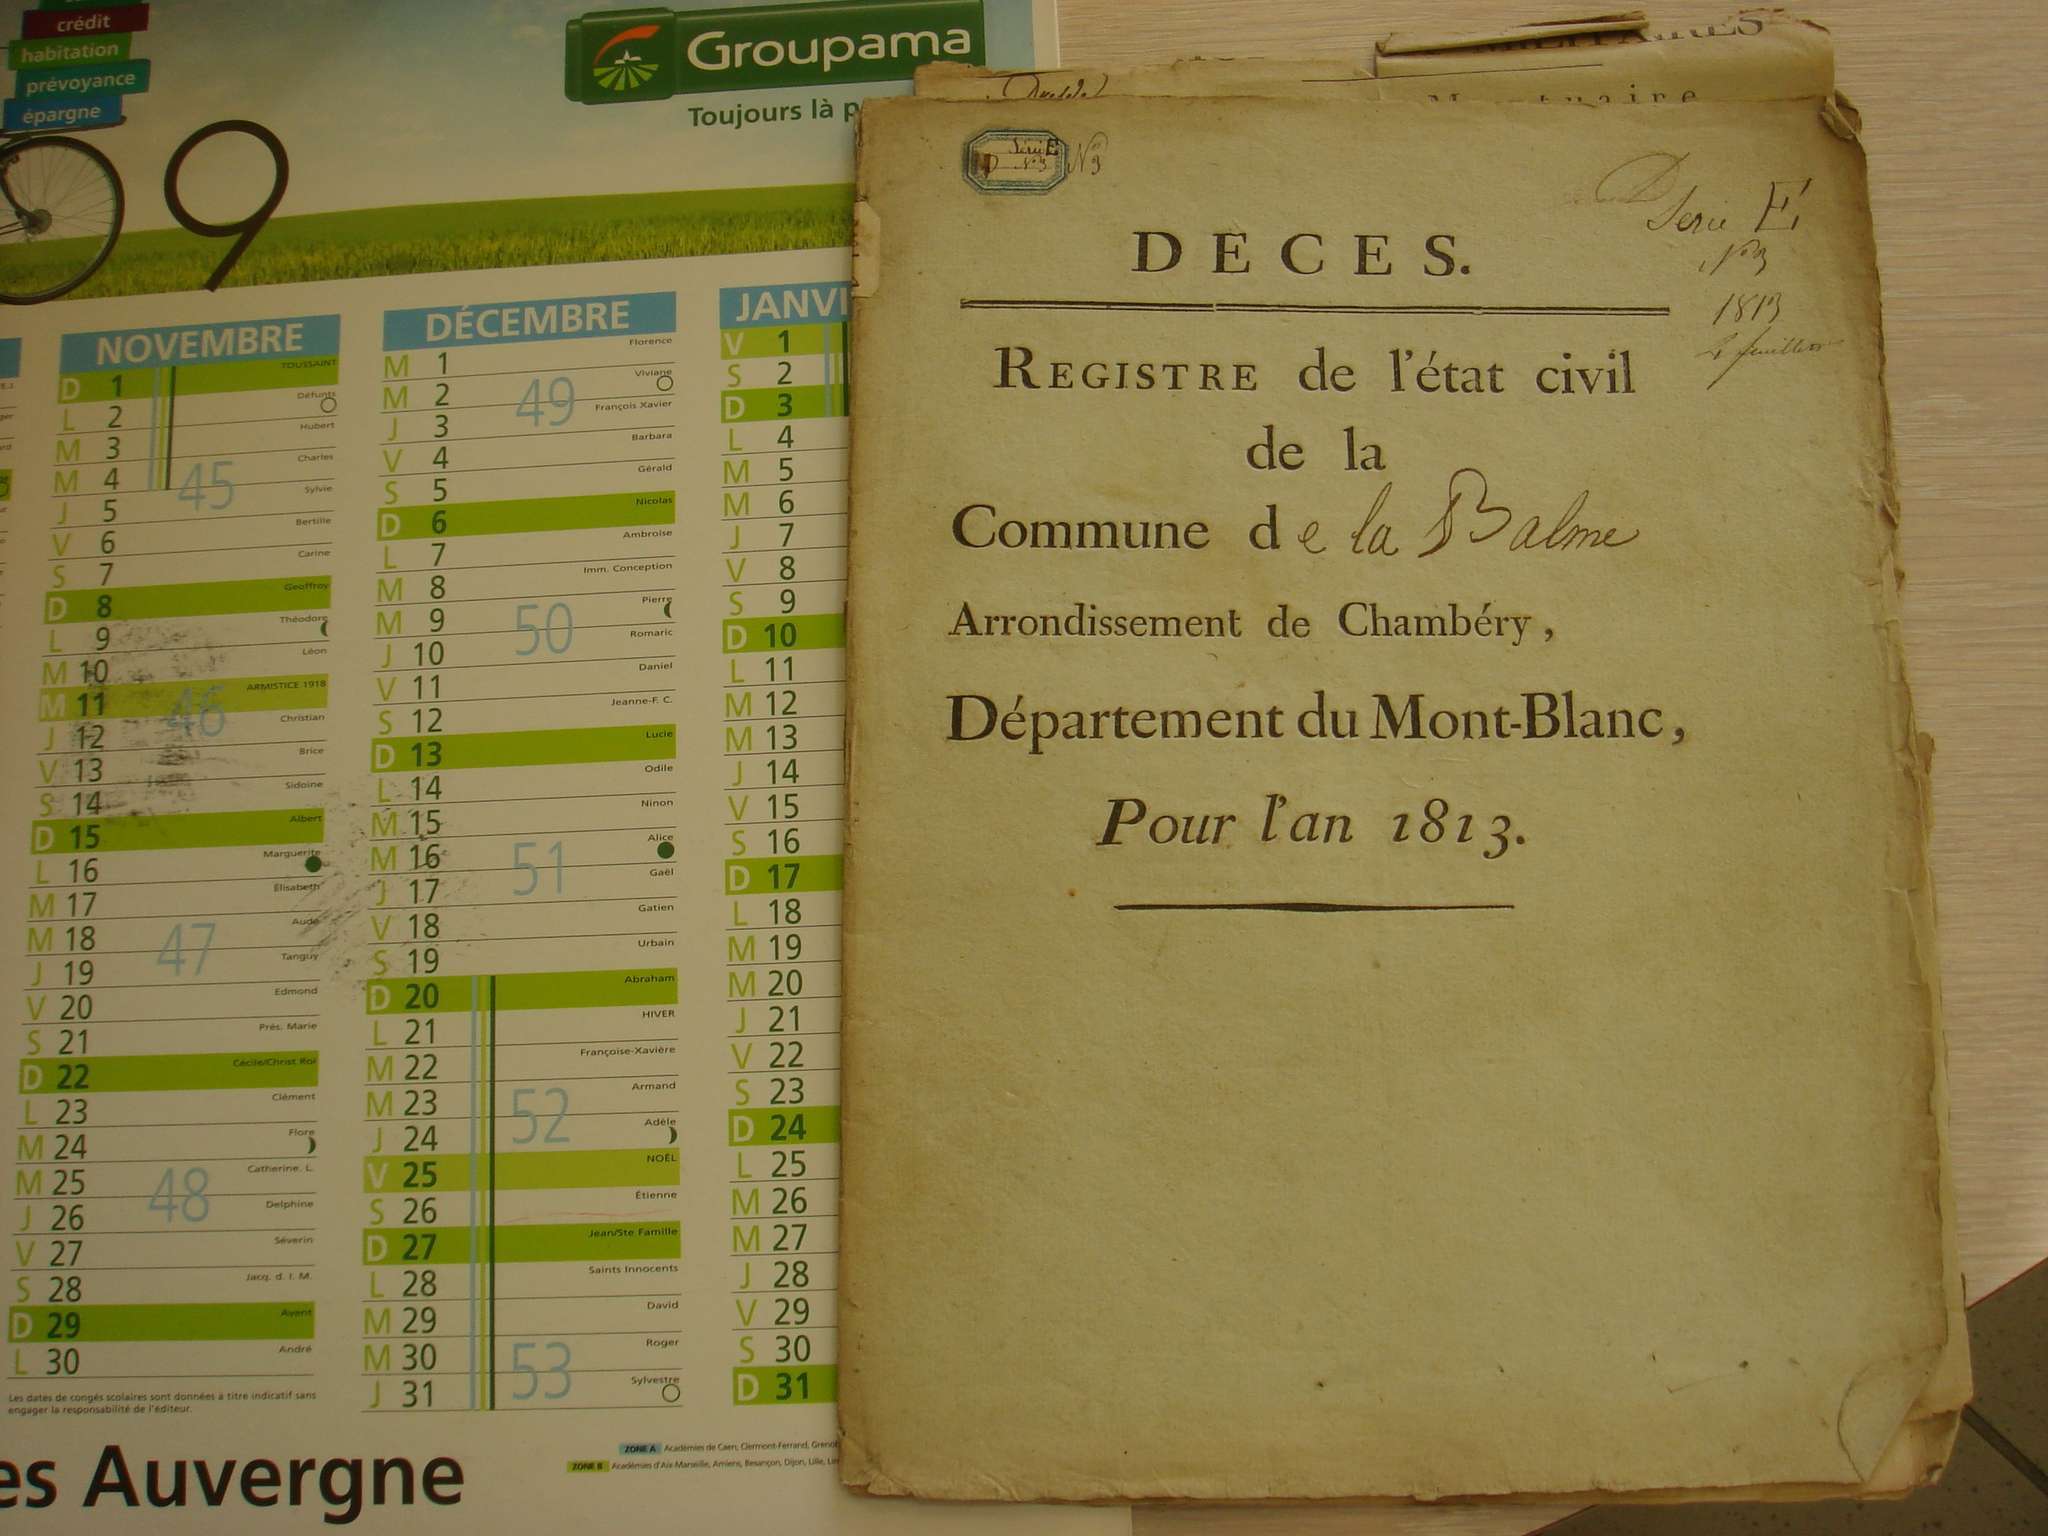 crédit
habitation
prévoyance
épargne
9
Groupama
Toujours là p
NOVEMBRE
D 1 TOUSSAINT
L 2 Défunts
M 3 Hubert
M 4 Charles
45
J 5 Sylvie
V 6 Bertille
S 7 Carine
D 8 Geoffroy
L 9 Théodore
M 10 Léon
M 11 ARMISTICE 1918
46
J 12 Christian
V 13 Brice
S 14 Sidoine
D 15 Albert
L 16 Marguerite
M 17 Élisabeth
M 18 Aude
47
J 19 Tanguy
V 20 Edmond
S 21 Prés. Marie
D 22 Cécile/Christ Roi
L 23 Clément
M 24 Flore
M 25 Catherine. L.
48
J 26 Delphine
V 27 Séverin
S 28 Jacq. d. l. M.
D 29 Avent
L 30 André
Les dates de congés scolaires sont données à titre indicatif sans
engager la responsabilité de l'éditeur.
DÉCEMBRE
M 1 Florence
M 2 Viviane
49
J 3 François Xavier
V 4 Barbara
S 5 Gérald
D 6 Nicolas
L 7 Ambroise
M 8 Imm. Conception
M 9 Pierre
50
J 10 Romaric
V 11 Daniel
S 12 Jeanne-F. C.
D 13 Lucie
L 14 Odile
M 15 Ninon
M 16 Alice
51
J 17 Gaël
V 18 Gatien
S 19 Urbain
D 20 Abraham
L 21 HIVER
M 22 Françoise-Xavière
M 23 Armand
52
J 24 Adèle
V 25 NOËL
S 26 Étienne
D 27 Jean/Ste Famille
L 28 Saints Innocents
M 29 David
M 30 Roger
53
J 31 Sylvestre
JANVI
V 1
S 2
D 3
L 4
M 5
M 6
J 7
V 8
S 9
D 10
L 11
M 12
M 13
J 14
V 15
S 16
D 17
L 18
M 19
M 20
J 21
V 22
S 23
D 24
L 25
M 26
M 27
J 28
V 29
S 30
D 31
ZONE A Académies de Caen, Clermont-Ferrand, Grenob
ZONE B Académies d'Aix-Marseille, Amiens, Besançon, Dijon, Lille, Lim
es Auvergne
MILITAIRES
Série E
D N°3
N°3
D
Serie E
N°3
1813
DÉCÈS.
REGISTRE de l'état civil
de la
Commune de la Balme
Arrondissement de Chambéry,
Département du Mont-Blanc,
Pour l'an 1813.